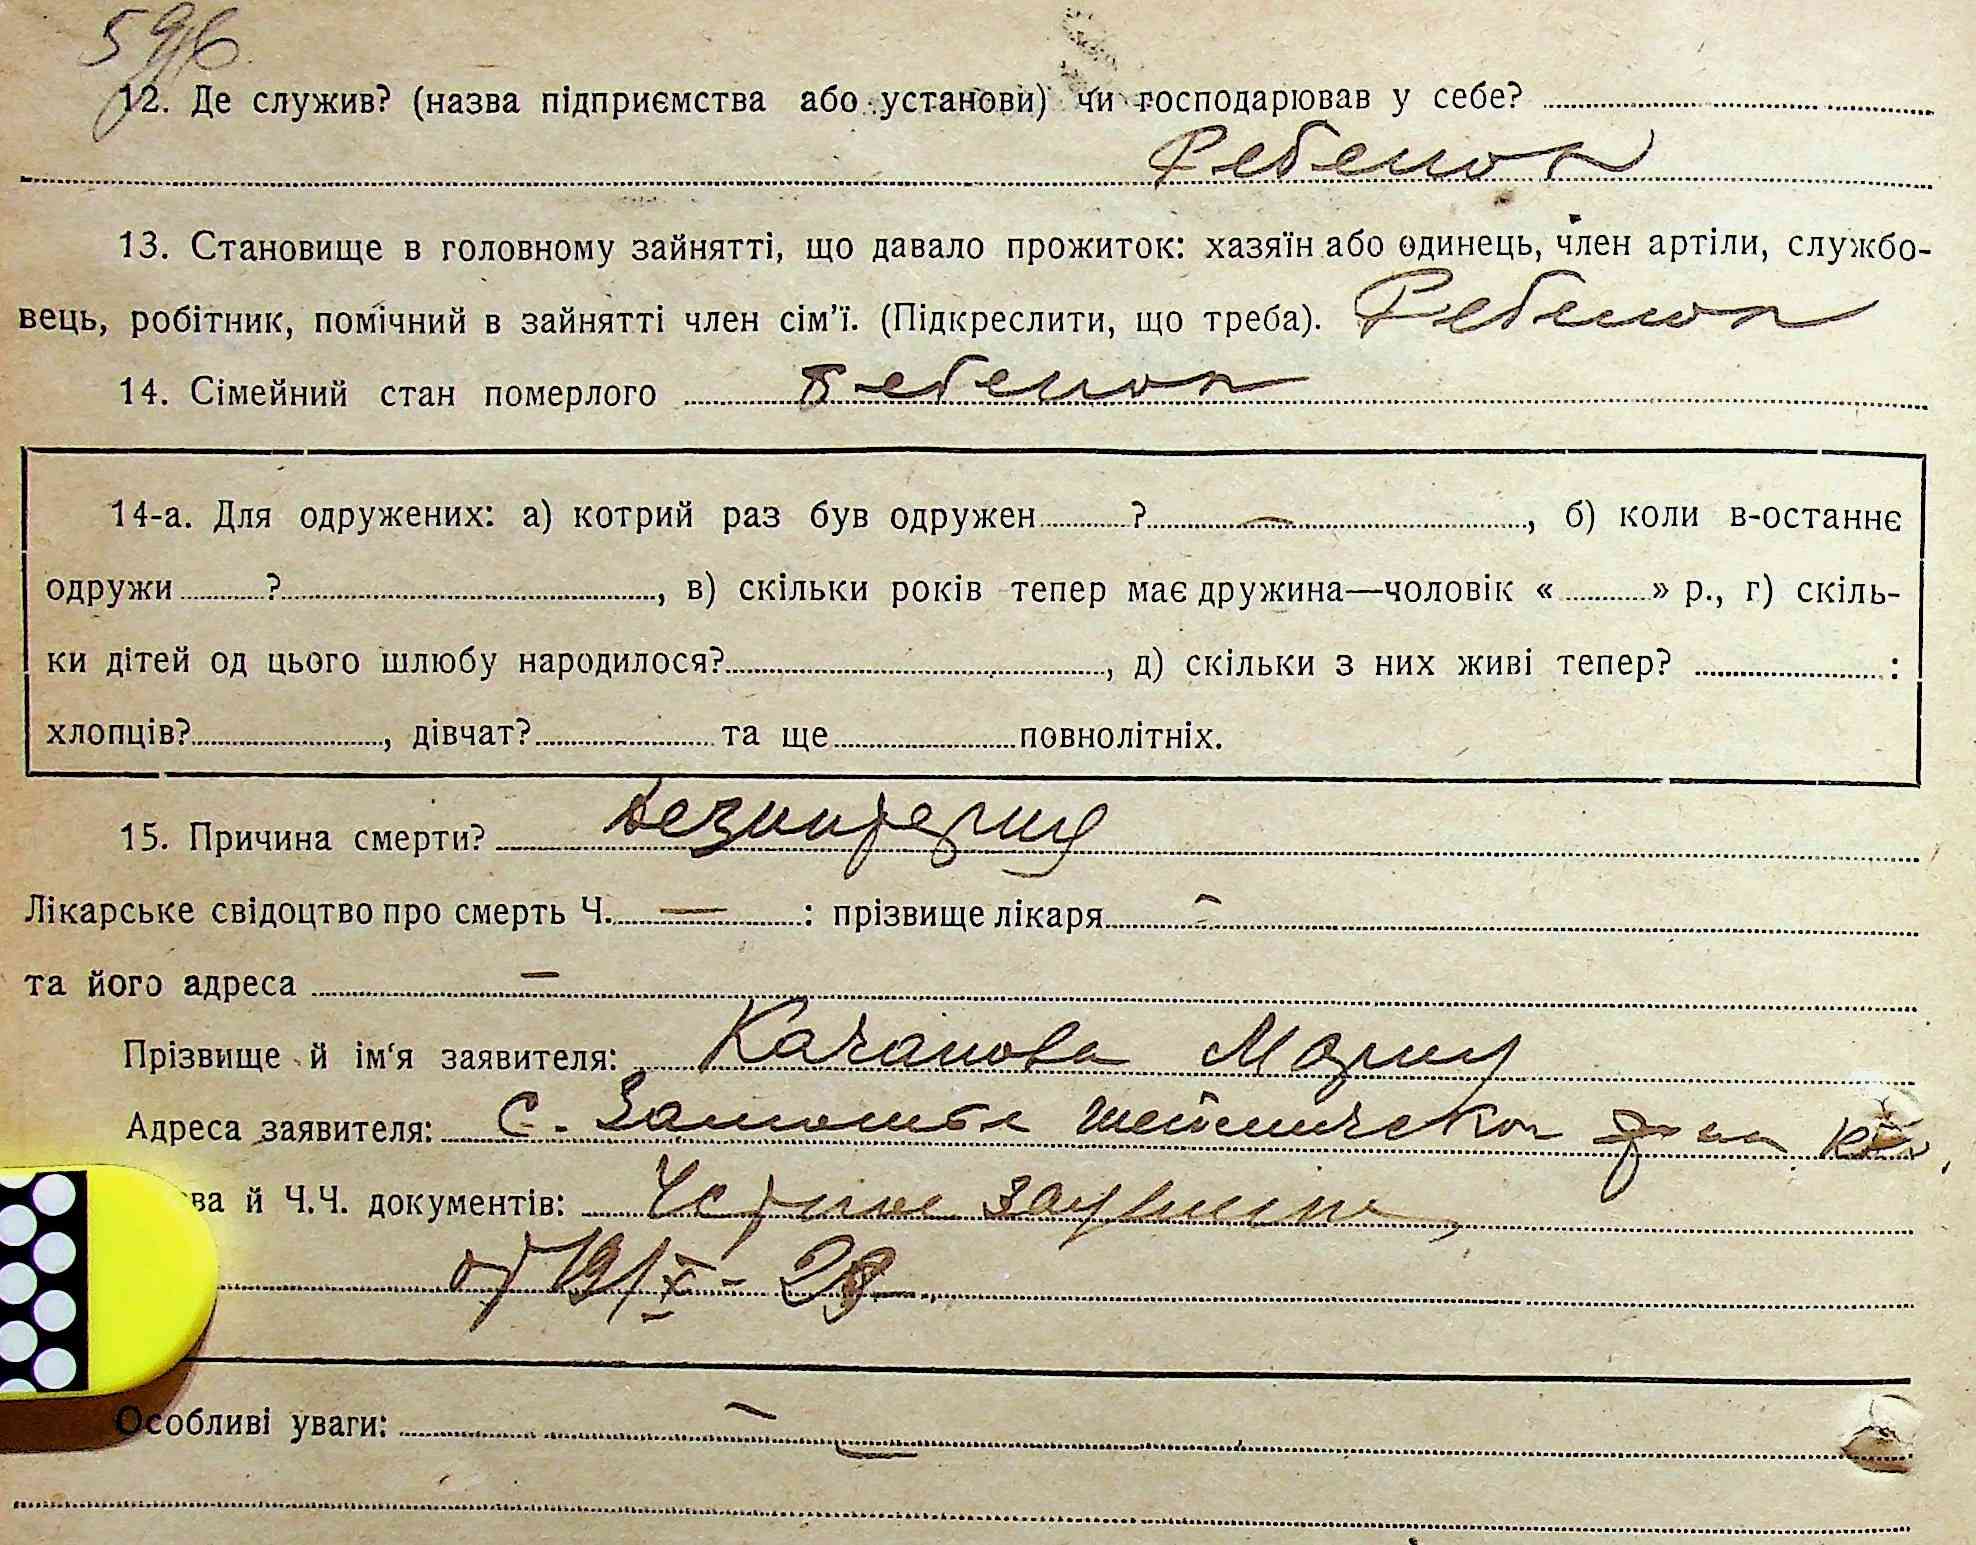 596
12. Де служив? (назва підприємства або установи) чи господарював у себе?
Ребенок
13. Становище в головному зайнятті, що давало прожиток: хазяїн або одинець, член артіли, службо-
вець, робітник, помічний в зайнятті член сім’ї. (Підкреслити, що треба). Ребенок
14. Сімейний стан померлого Ребенок
14-а. Для одружених: а) котрий раз був одружен ? — , б) коли в-останнє
одружи ? , в) скільки років тепер має дружина—чоловік « » р., г) скіль-
ки дітей од цього шлюбу народилося? , д) скільки з них живі тепер? :
хлопців? , дівчат? та ще повнолітніх.
15. Причина смерти? Дезинтерия
Лікарське свідоцтво про смерть Ч. — : прізвище лікаря —
та його адреса —
Прізвище й ім‘я заявителя: Качанова Мария
Адреса заявителя: с.
ва й Ч.Ч. документів:
от 19/X - 28
Особливі уваги: —